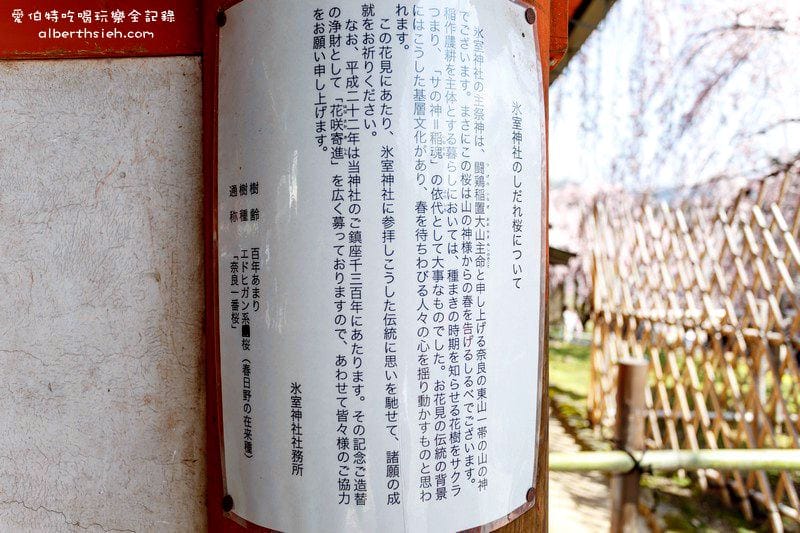 愛伯特吃喝玩樂全記錄
alberthsieh.com
氷室神社のしだれ桜について
氷室神社の主祭神は、闘鶏稲置大山主命と申し上げる奈良の東山一帯の山の神
でございます。まさにこの桜は山の神様からの春を告げるしるべでございます。
稲作農耕を主体とする暮らしにおいては、種まきの時期を知らせる花樹をサクラ
つまり、「サの神＝稲魂」の依代として大事なものでした。お花見の伝統の背景
にはこうした基層文化があり、春を待ちわびる人々の心を揺り動かすものと思わ
れます。
この花見にあたり、氷室神社に参拝しこうした伝統に思いを馳せて、諸願の成
就をお祈りください。
なお、平成二十二年は当神社のご鎮座千三百年にあたります。その記念ご造替
の浄財として「花咲寄進」を広く募っておりますので、あわせて皆々様のご協力
をお願い申し上げます。
氷室神社社務所
樹齢 百年あまり
樹種 エドヒガン系 桜（春日野の在来種）
通称 「奈良一番桜」